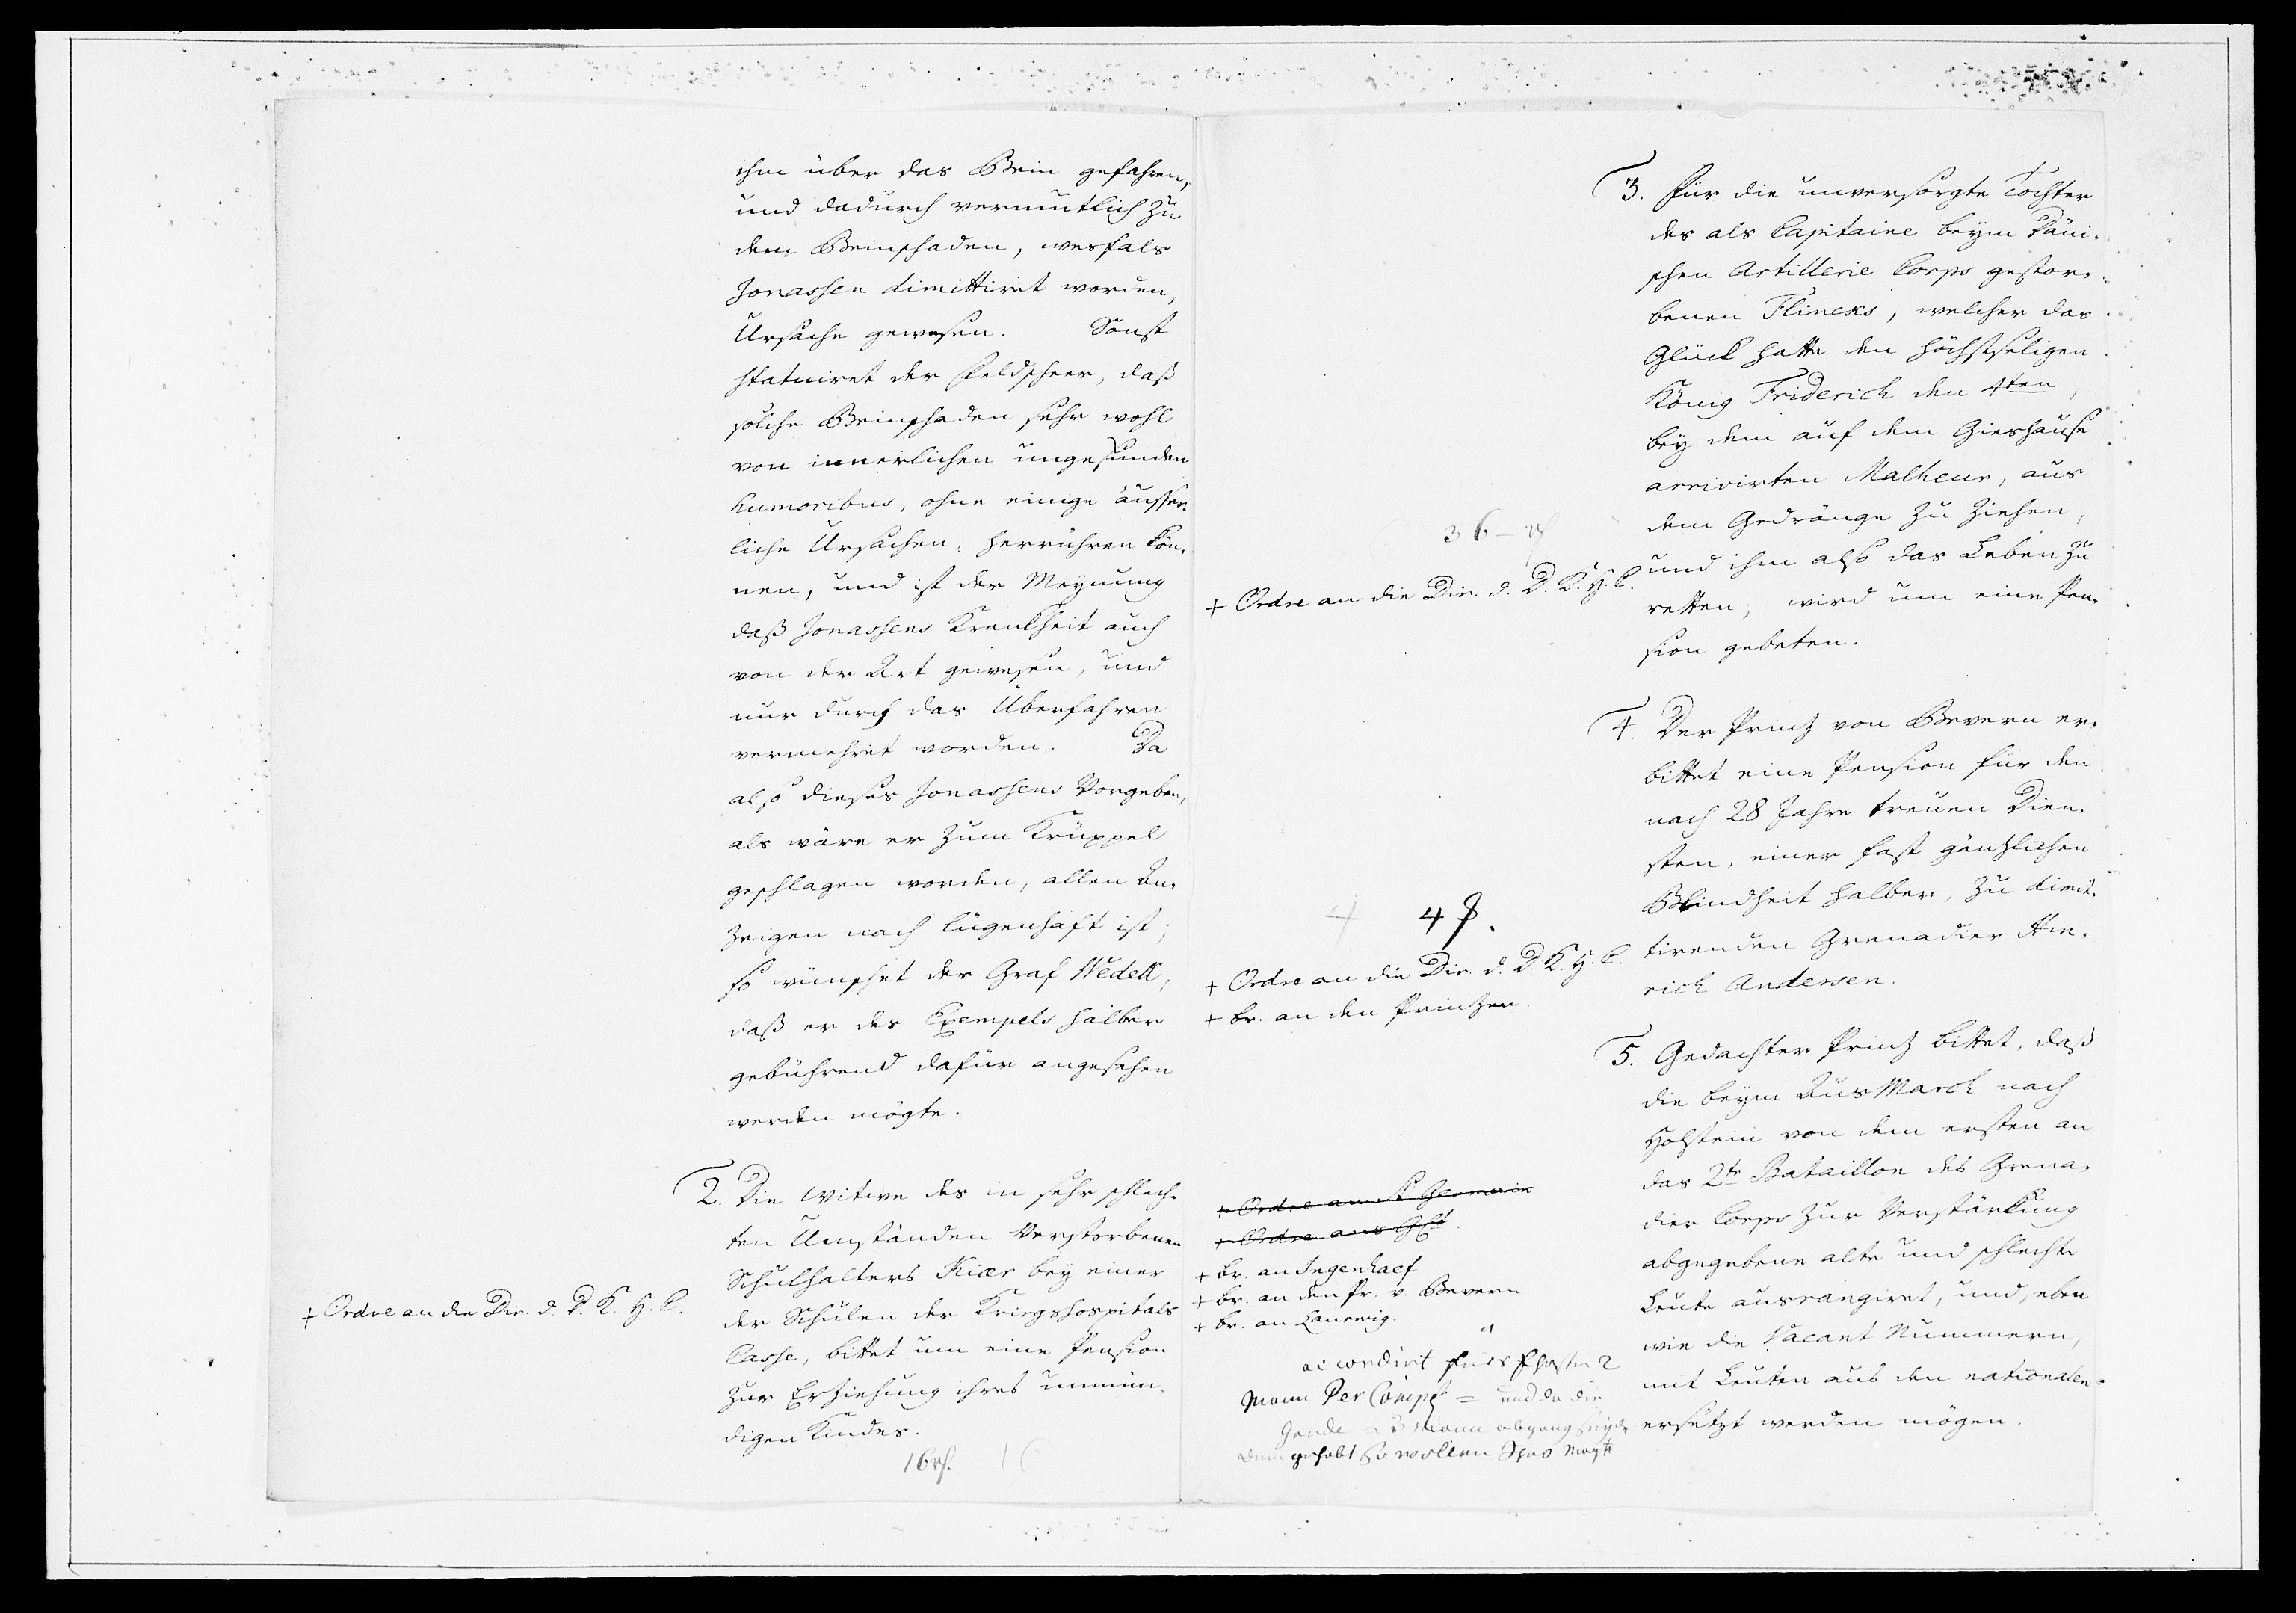 ihm über das Bein gefahren,
und dadurch vermutlich zu
dem Beinschaden, wesfals
Jonassen dimittiret worden,
Ursache gewesen. Sonst
statuiret der Feldscheer, daß
solche Beinschaden sehr wohl
von innerlichen ungesunden
humoribus, ohne einige äusser-
liche Ursachen, herrühren kön-
nen, und ist der Meynung
daß Jonassens Kranckheit auch
von der Art gewesen, und
nur durch das Überfahren
vermehret worden. Da
also dieses Jonassens Vorgeben,
als wäre er zum Krüppel
geschlagen worden, allen An-
zeigen nach lügenhaft ist;
so wünschet der Graf Wedell,
daß er des Exempels halber
gebührend dafür angesehen
werden mögte.
2. Die Witwe des in sehr schlech-
ten Umständen verstorbenen
Schulhalters Kiær bey einer
der Schulen der Kriegshospitals
Casse, bittet um eine Pension
zur Erziehung ihres unmün-
digen Kindes.
+ Ordre an die Dir. d. D. K. H. C.
16 rf. 16
3. Für die unversorgte Tochter
des als Capitaine beym Däni-
schen Artillerie Corps gestor-
benen Flincks, welcher das
Glück hatte den höchstseligen
König Friderich den 4ten,
bey dem auf dem Gieshause
arrivirten Malheur, aus
dem Gedränge zu ziehen,
und ihm also das Leben zu
retten, wird um eine Pen-
sion gebeten.
36 – rf
+ Ordre an die Dir. d. D. K. H. C.
4. Der Printz von Bevern er-
bittet eine Pension für den
nach 28 Jahre treuen Dien-
sten, einer fast gäntzlichen
Blindheit halber, zu dimit-
tirenden Grenadier Hin-
rich Andersen.
4 4 β.
+ Ordre an die Dir. d. D. K. H. C.
+ br. an den Printzen.
5. Gedachter Printz bittet, daß
die beym Aus March nach
Holstein von dem ersten an
das 2te Bataillon des Grena-
dier Corps zur Verstärkung
abgegebene alte und schlechte
Leute ausrangiret, und, eben
wie die Vacant Nummern,
mit Leuten aus den nationalen
ersetzt werden mögen.
+ Ordre an St Germain
+ Ordre ans
+ br. an Ingenhaef
+ br. an den Pr. v. Bevern
+ br. an Laurwig.
accordirt 2
Mann Per Comp = und da die
Garde 3 Mann abgang
gehabt so wollen Ihro Mayt